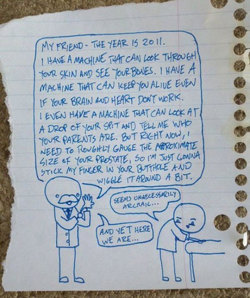 MY FRIEND - THE YEAR IS 2011.
I HAVE A MACHINE THAT CAN LOOK THROUGH
YOUR SKIN AND SEE YOUR BONES. I HAVE A
MACHINE THAT CAN KEEP YOU ALIVE EVEN
IF YOUR BRAIN AND HEART DON'T WORK.
I EVEN HAVE A MACHINE THAT CAN LOOK AT
A DROP OF YOUR SPIT AND TELL ME WHO
YOUR PARENTS ARE. BUT RIGHT NOW, I
NEED TO ROUGHLY GAUGE THE APPROXIMATE
SIZE OF YOUR PROSTATE, SO I'M JUST GONNA
STICK MY FINGER IN YOUR BUTTHOLE AND
WIGGLE IT AROUND A BIT.
SEEMS UNNECESSARILY
ARCHAIC...
AND YET HERE
WE ARE...